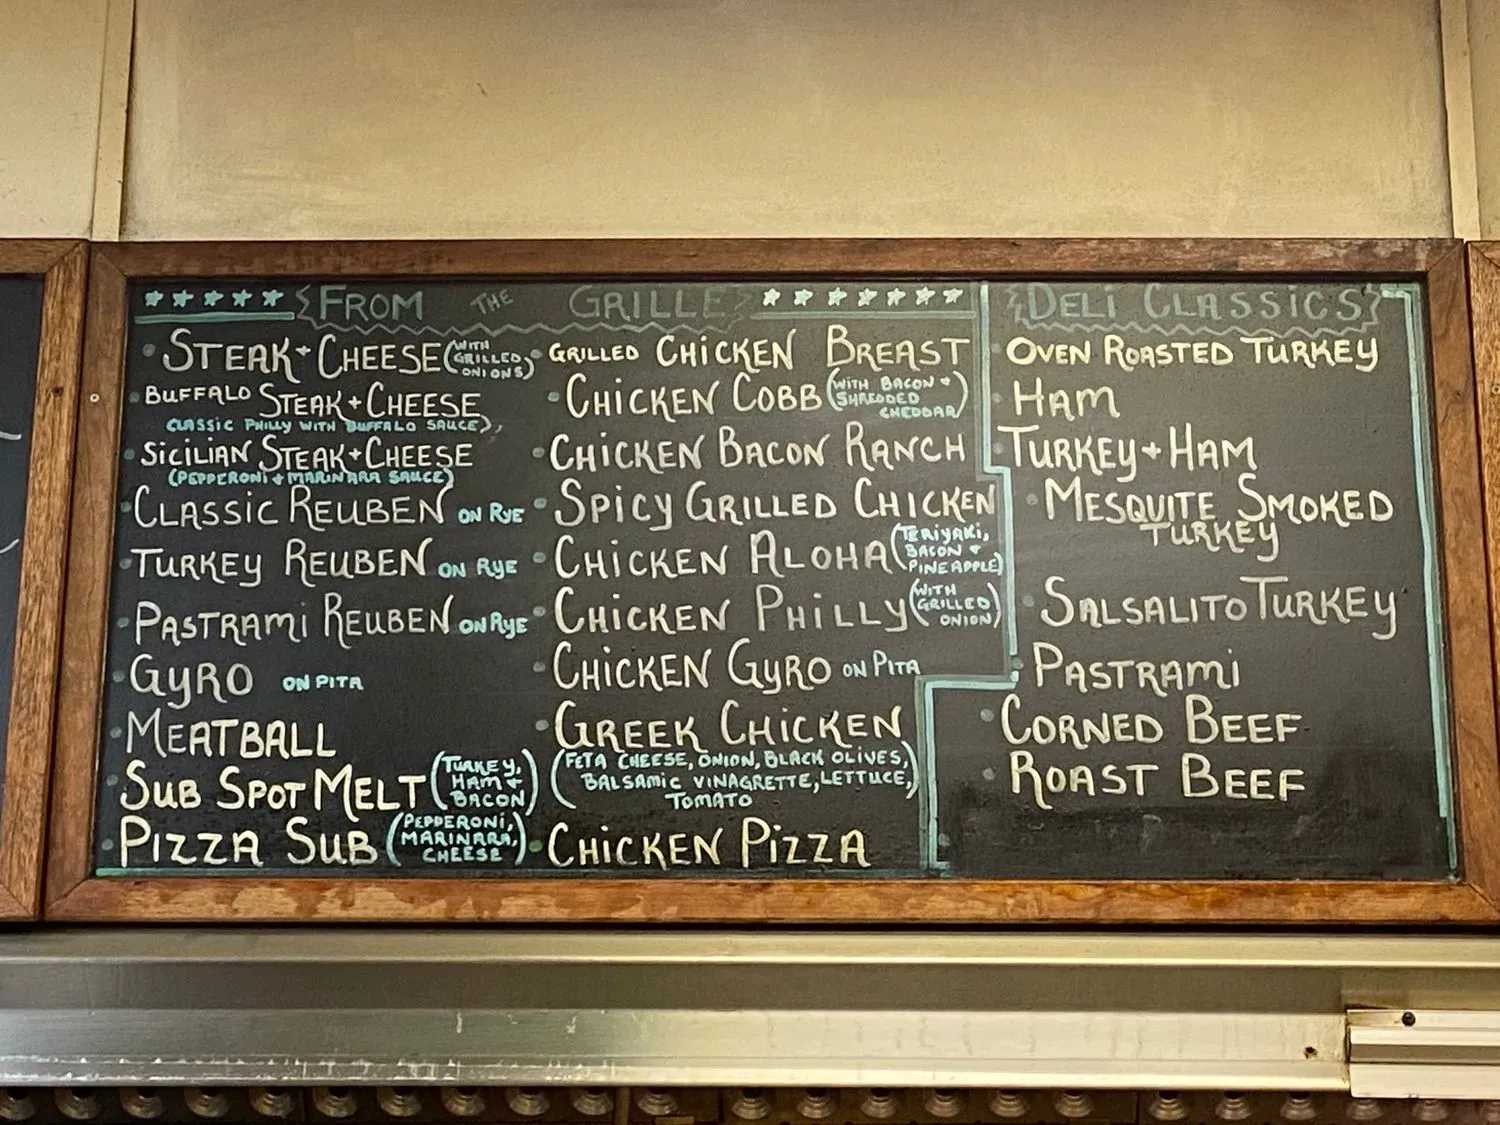 FROM THE GRILLE
STEAK + CHEESE (WITH GRILLED ONIONS)
BUFFALO STEAK + CHEESE
CLASSIC PHILLY WITH BUFFALO SAUCE)
SICILIAN STEAK + CHEESE
(PEPPERONI + MARINARA SAUCE)
CLASSIC REUBEN ON RYE
TURKEY REUBEN ON RYE
PASTRAMI REUBEN ON RYE
GYRO ON PITA
MEATBALL
SUB SPOT MELT (TURKEY, HAM + BACON)
PIZZA SUB (PEPPERONI, MARINARA, CHEESE)
GRILLED CHICKEN BREAST
CHICKEN COBB (WITH BACON + SHREDDED CHEDDAR)
CHICKEN BACON RANCH
SPICY GRILLED CHICKEN
CHICKEN ALOHA (TERIYAKI, BACON + PINEAPPLE)
CHICKEN PHILLY (WITH GRILLED ONION)
CHICKEN GYRO ON PITA
GREEK CHICKEN
(FETA CHEESE, ONION, BLACK OLIVES,
BALSAMIC VINAGRETTE, LETTUCE,
TOMATO
CHICKEN PIZZA
DELI CLASSICS
OVEN ROASTED TURKEY
HAM
TURKEY + HAM
MESQUITE SMOKED
TURKEY
SALSALITO TURKEY
PASTRAMI
CORNED BEEF
ROAST BEEF